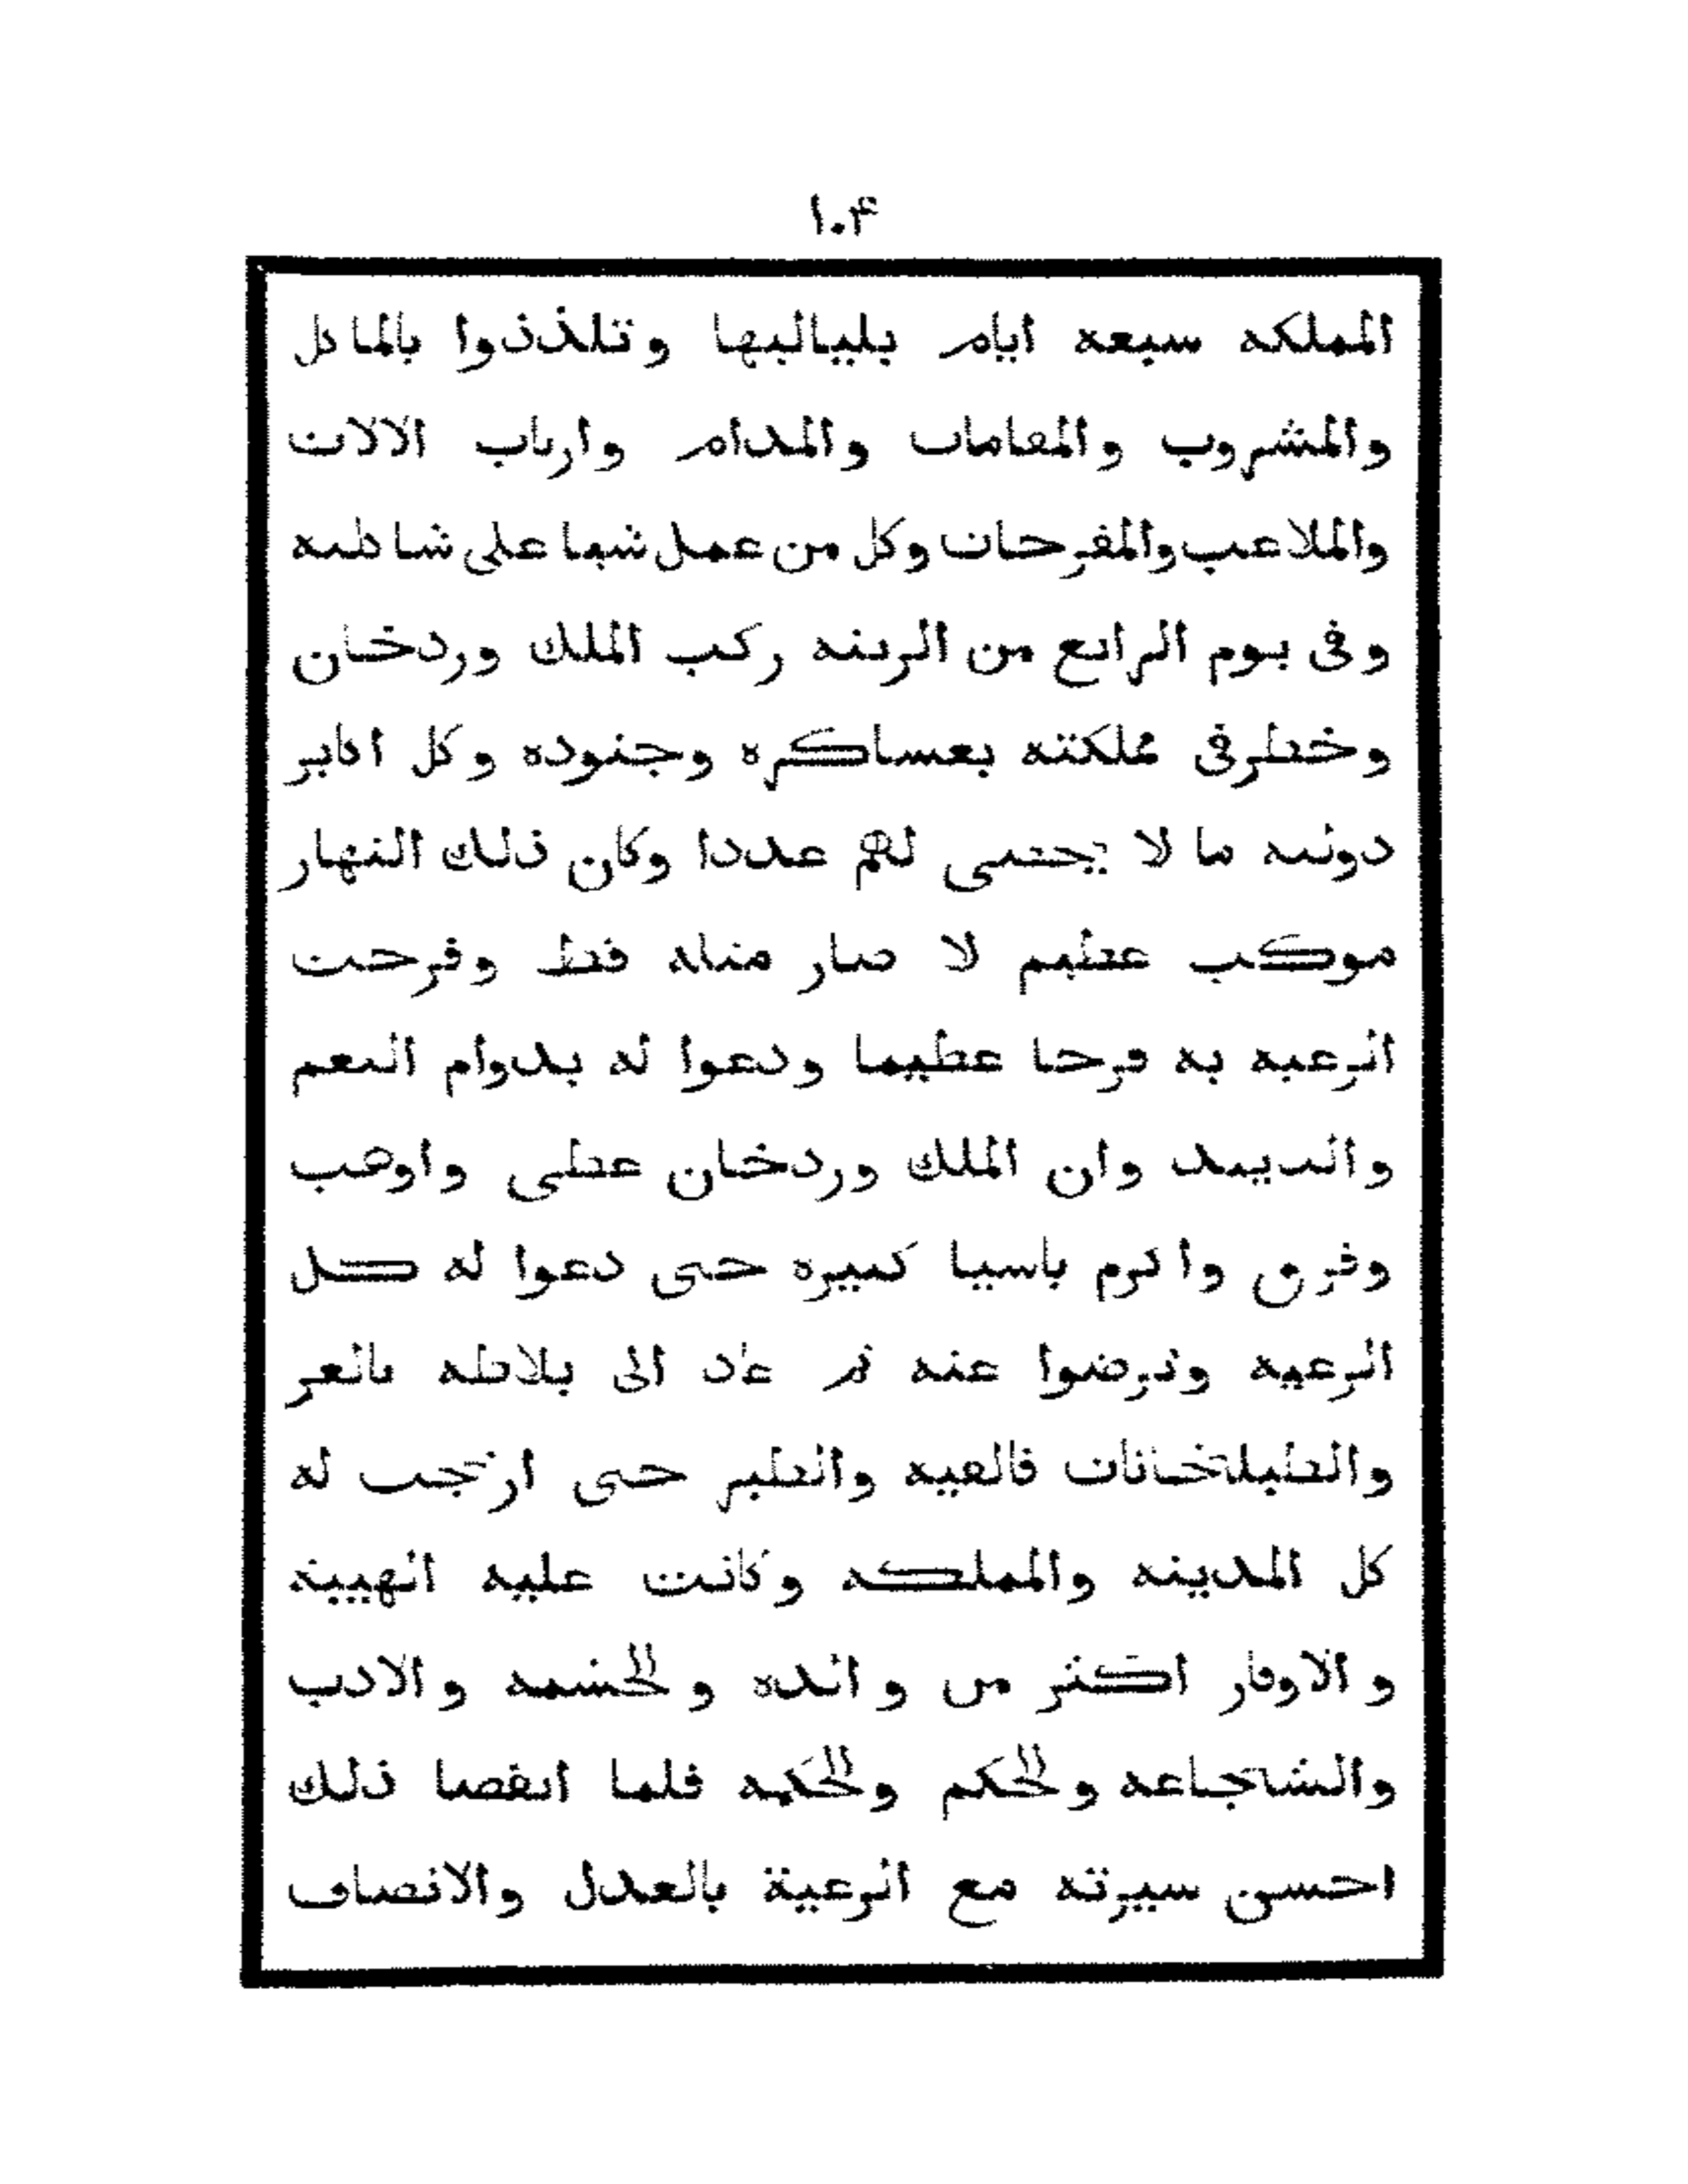 ١٠۴
المملكه سبعه ايام بلياليها وتلذذوا بالماكل
والمشروب والمقامات والمدام وارباب الالات
والملاعب والمفرحات وكل من عمل شيا على شاطيه
وفى يوم الرابع من الزينه ركب الملك وردخان
وخطر فى مملكته بعساكره وجنوده وكل اكابر
دولته ما لا يحتصى لهم عددا وكان ذلك النهار
موكب عظيم لا صار مثله قط وفرحت
الرعيه به فرحا عظيما ودعوا له بدوام النعم
والتاييد وان الملك وردخان عطى واوهب
وفرق واكرم باسيا كبيره حتى دعوا له كل
الرعيه وترضوا عنه ثم عاد الى بلاطه بالعز
والطبلخانات فالعيه والطير حتى ارتجت له
كل المدينه والمملكه وكانت عليه الهيبة
والاوقار اكثر من والده والحشمه والادب
والشجاعه والحكم والحكمه فلما انقصا ذلك
احسن سيرته مع الرعية بالعدل والانصاف